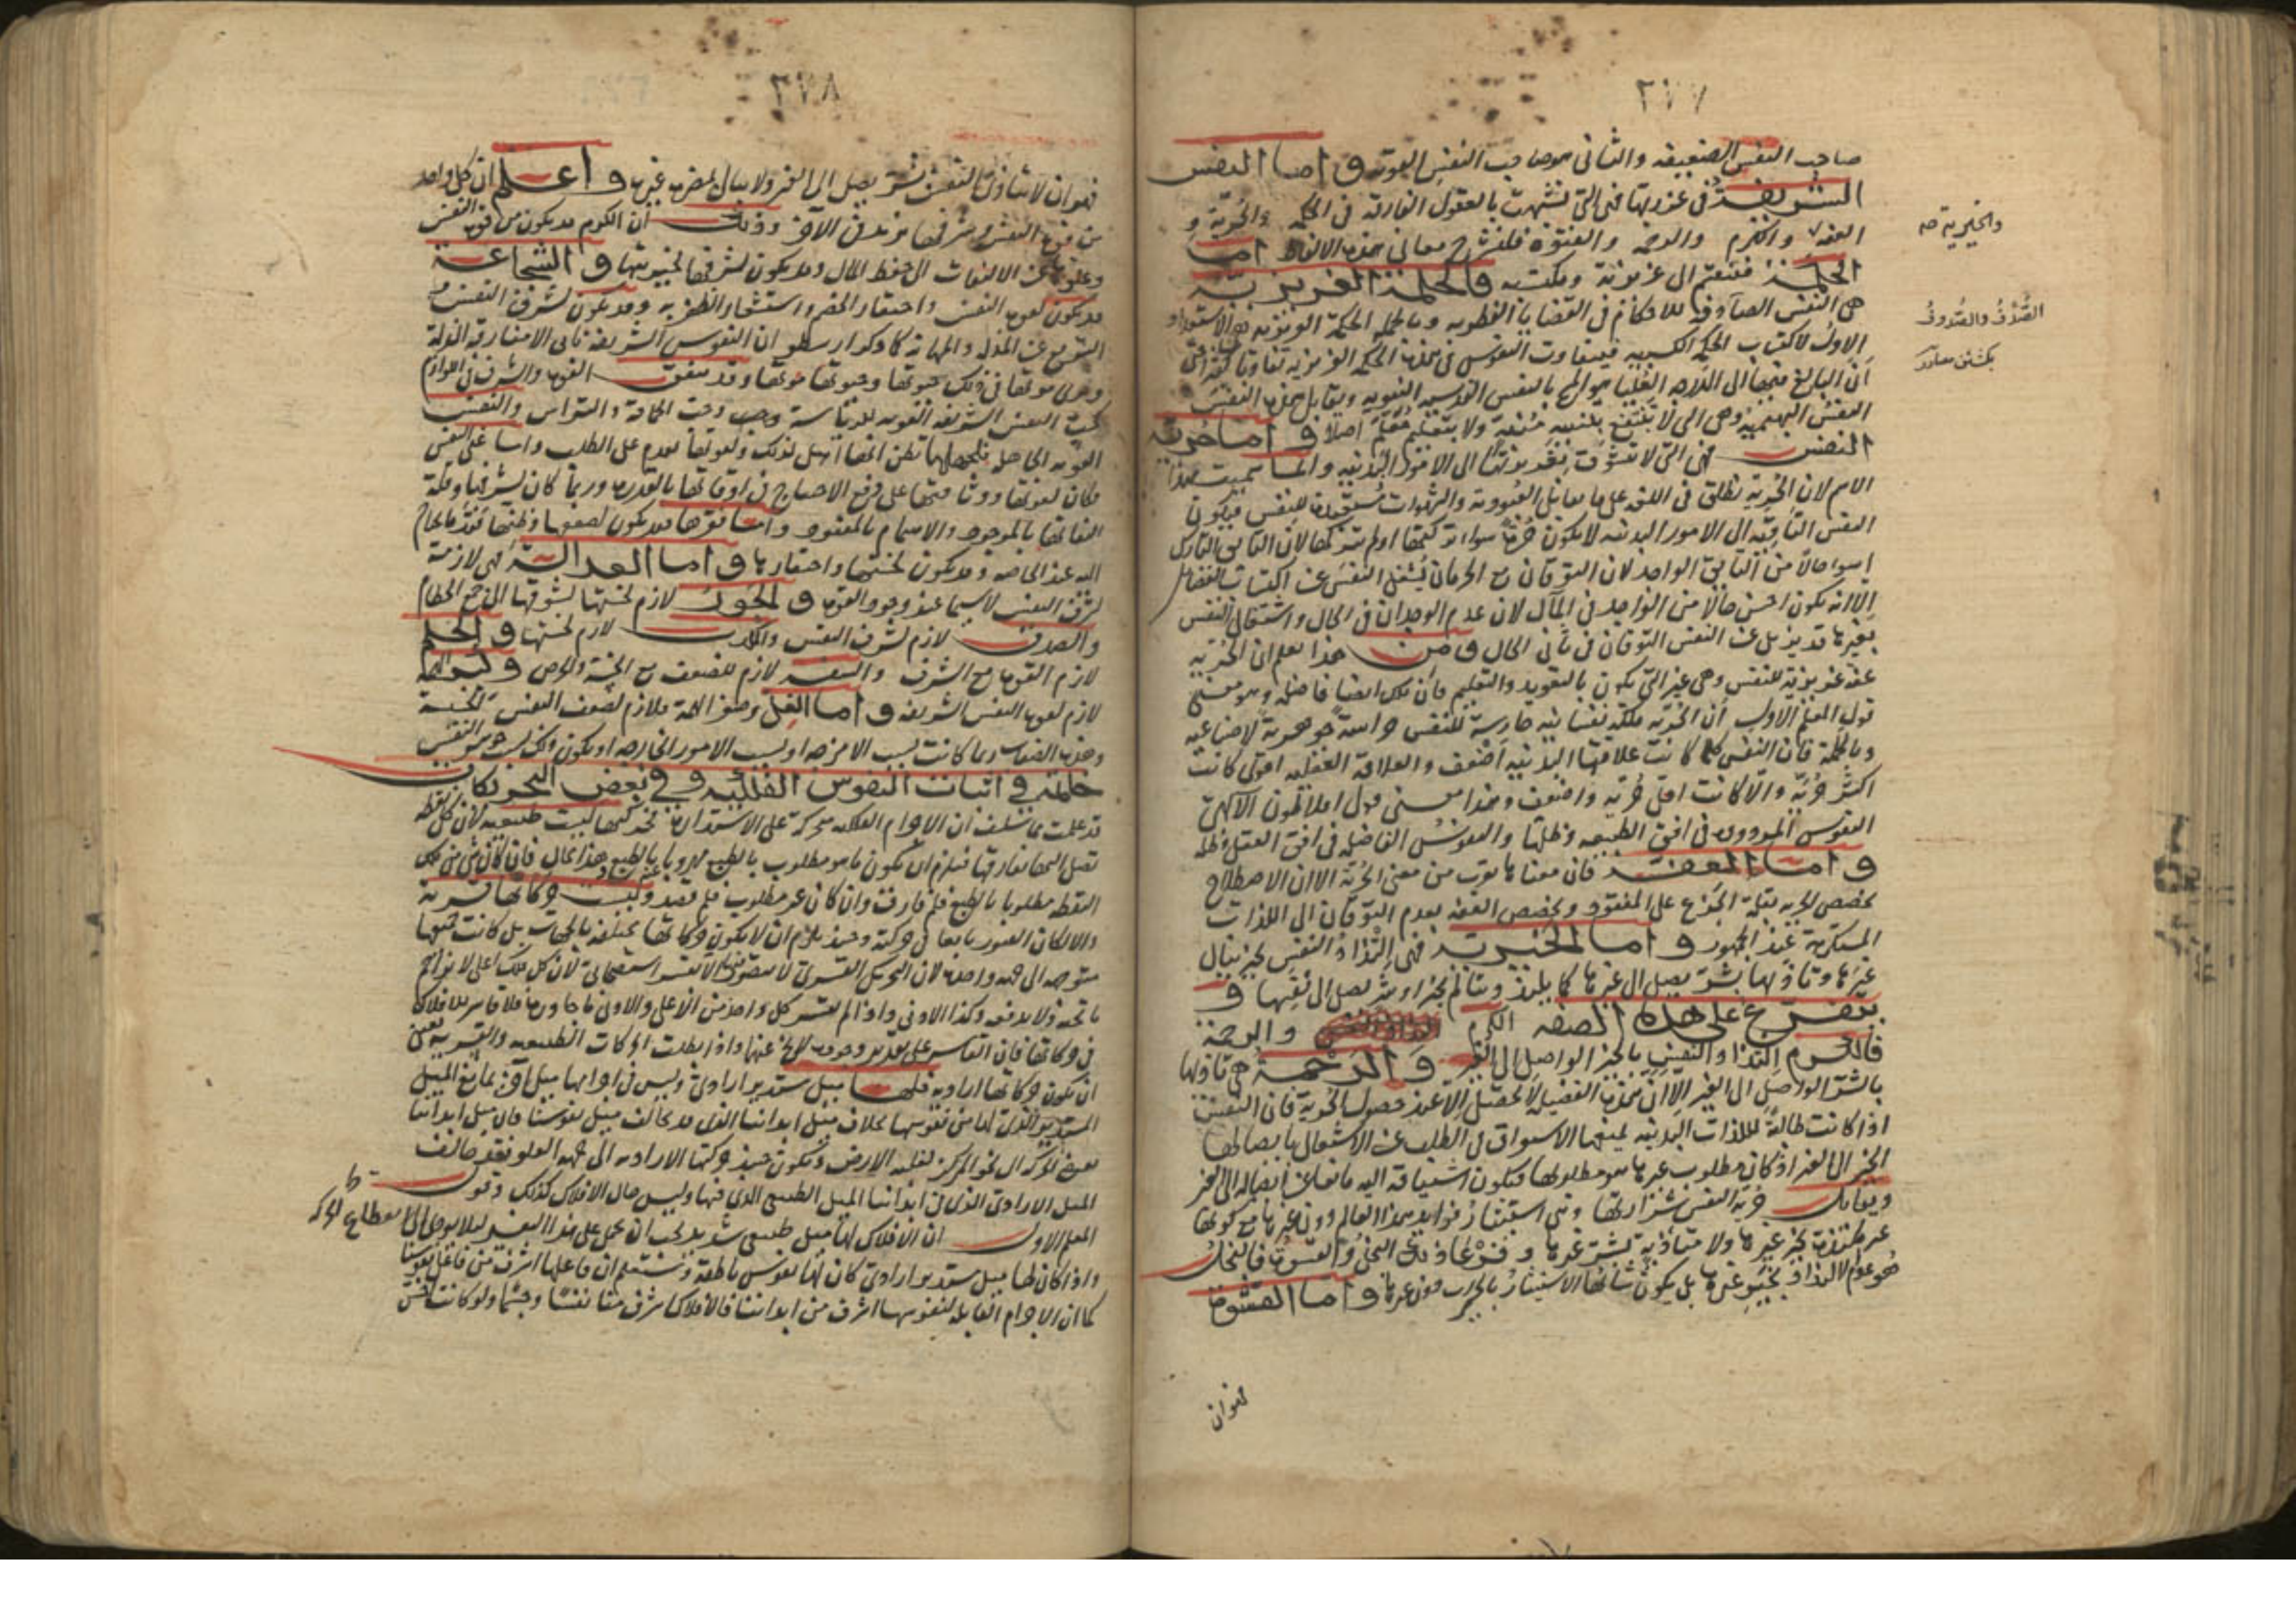 ٢٧٧
صاحب النفس الضعيفه والثانى هو صاحب النفس القويه واما النفس
الشريفة فى غريزتها فهى التى تشبهت بالعقول المفارقه فى الحكمة والحرية و
العفة والكرم والرحمه والفتوة فلنشرح معانى هذه الالفاظ اما
الحكمة فتنقسم الى غريزية ومكتسبه فالحكمة الغريزية
هى النفس الصادقه للاحكام فى القضايا الفطريه وبالجمله الحكمة الغريزيه هى الاستعداد
الاول لاكتساب الحكمة الكسبيه فيتفاوت النفوس فى هذه الحكمة الغريزيه تفاوتا حتى
ان البالغ فيها الى الدرجه العليا هو المسمى بالنفس القدسيه النبويه ويقابل هذه النفس
النفس البهيميه وهى التى لا تنتفع بنفسه ولا بتعليم معلم اصلا واما حرية
النفس فهى التى لا تتشوق بغريزتها الى الامور البدنيه وانما سميت بهذا
الاسم لان الحرية تطلق فى اللغه على ما يقابل العبودية والشهوات مستعبدة للنفس فيكون
النفس التائقه الى الامور البدنيه لا يكون حرة سواء تركتها او لم تتركها لان التائق التارك
اسوء حالا من التائق الواجد لان التوقان مع الحرمان يشغل النفس عن اكتساب الفضائل
الا انه يكون احسن حالا من الواجد فى المآل لان عدم الوجدان فى الحال واشتغال النفس
بغيرها قد يزيل عن النفس التوقان فى ثانى الحال ومن هذا يعلم ان الحرية
عفة غريزية للنفس وهى غير التى يكون بالتعويد والتعليم فان تلك ايضا فاضله وهو معنى
قول المعلم الاول ان الحرية ملكة نفسانيه حارسة للنفس حراسة جوهرية لا صناعيه
وبالجملة فان النفس كلما كانت علاقتها البدنيه اضعف والعلاقه العقليه اقوى كانت
اكثر حرية والا كانت اقل حرية واضعف وهذا معنى قول افلاطون الالهى
النفوس المرذوله فى افق الطبيعه وظلها والنفوس الفاضله فى افق العقل وظله
واما العفة فان معناها يقرب من معنى الحرية الا ان الاصطلاح
يخصص الحريه بقلة الجزع على المفقود ويخصص العفه بعدم التوقان الى اللذات
المستكرهة عند الجمهور واما الخيرية فهى التذاذ النفس بخير ينال
غيرها وتأذيها بشر يصل الى غيرها كما يلتذ ويتألم بخير او شر يصل الى نفسها و
يتفرع على هذه الصفه الكرم والرحمة
فالكرم التذاذ النفس بالخير الواصل الى الغير والرحمة هى تأذيها
بالشر الواصل الى الغير الا ان هذه الفضيله لا تحصل الا عند حصول الحرية فان النفس
اذا كانت طالبة لللذات البدنيه يمنعها الاستغراق فى الطلب عن الاشتغال بايصالها
الخير الى الغير اذ كان مطلوب غيرها هو مطلوبها فيكون اشتياقه اليه مانعا عن ايصاله الى الغير
ويقابل حرية النفس شرارتها وهى استيثار فوايد هذا العالم دون غيرها مع كونها
غير ملتذة بخير غيرها ولا متأذية بشر غيرها وفرعا ذلك البخل والقسوة فالبخل
هو عدم الالتذاذ بخير غيرها بل يكون شأنها الاستيثار بالخير دون غيرها واما القسوة
فهو ان
والخيرية صح
الصُّدُف والصُّدوف
٢٧٨
فهو ان لا يتأذى النفس بشر يصل الى الغير ولا يبالى بمضره غيره واعلم ان كل واحد
من قوة النفس وشرفها مزيد فى الآخر وذلك ان الكرم قد يكون من قوة النفس
وعلوها عن الالتفات الى حفظ المال وقد يكون لشرفها لخيريتها والشجاعة
قد يكون لقوة النفس واحتقار الخصم واستشعار الظفر به وقد يكون لشرف النفس و
الترفع عن المذلة والمهانة كما ذكر ارسطو ان النفوس الشريفة تأبى الامتنان مقارنة الذلة
وترى موتها فى ذلك حيوتها وحيوتها موتها وقد يتفق القوة والشرف فى اللوازم
كحب النفس الشريفه القويه للرياسة وحب
القويه الجاهله بكمالها تظن انها اهل لذلك ولقوتها تقدم على الطلب واما غنى النفس
فكان لقوتها ووثوقها على رفع الاحتياج فى اوقاتها بالقدره وربما كان لشرفها وقلة
التفاتها بالموجود والاهتمام بالمفقود واما فقرها فقد يكون لضعفها وظنها فقد ما يحتاج
اليه عند الحاجه وقد يكون لخستها واحتقارها واما العدالة فهى لازمة
لشرف النفس لا سيما عند وجود القوة والجور لازم لخستها لشوقها الى جمع الحطام
والصدق لازم لشرف النفس والكذب لازم لخستها والحلم
لازم القوة مع الشرف والسفه لازم للضعف مع الخسة والحرص وكبر الهمة
لازم لقوة النفس الشريفه واما الغل وصغر الهمة فلازم لضعف النفس الخسيسة
وهذه الصفات ربما كانت بسبب الامزجه او بسبب الامور الخارجه او يكون ذلك بسبب جوهر النفس
خاتمة فى اثبات النفوس الفلكيه وفى بعض التحريكات
قد علمت مما سلف ان الاجرام الفلكيه متحركة على الاستداره تحركها ليست طبيعيه لان كل نقطه
تصل اليها تفارقها فيلزم ان يكون ما هو مطلوب بالطبع مهروبا بالطبع وهذا محال فان كان شىء من تلك
النقطه مطلوبا بالطبع فلم فارقت وان كان غير مطلوب فلم تقصد وليست حركاتها قسرية
والا لكان القسر تابعا فى حركته وحينئذ يلزم ان لا يكون حركاتها مختلفه بالجهات بل كانت جميعها
متوجهه الى جهه واحده لان التحريك القسرى لا يتصور الا بقسر استتباعى لان كل فلك اعلى لا يزاحم
ما تحته ولا يدفعه وكذا الادنى واذا لم يقسر كل واحد من الاعلى والادنى ما جاوره فلا قاسر للافلاك
فى حركاتها فان القاسر على تقدير وجوده لا يخرج عنهما واذا بطلت الحركات الطبيعيه والقسريه تعين
ان يكون حركاتها اراديه فلها ميل مستدير ارادى وليس فى اجرامها ميل آخر يمانع الميل
المستدير الذى لها من نفوسها بخلاف ميل ابداننا الذى قد يخالف ميل نفوسنا فان ميل ابداننا
الى نحو المركز لغلبه الارض ويكون حينئذ حركتها الاراديه الى جهه العلو فقد خالف
الميل الارادى الذى فى ابداننا الميل الطبيعى الذى فيها وليس حال الافلاك كذلك وقول
المعلم الاول ان الافلاك لها ميل طبيعى شديد يجب ان يحمل على هذا التفسير ليلا يؤدى الى انقطاع الحركه
واذا كان لها ميل مستدير ارادى كان لها نفوس ناطقة وستعلم ان فاعلها اشرف من فاعل نفوسنا
كما ان الاجرام القابله لنفوسها اشرف من ابداننا فالافلاك اشرف منا نفسا وجسما ولو كانت اخس